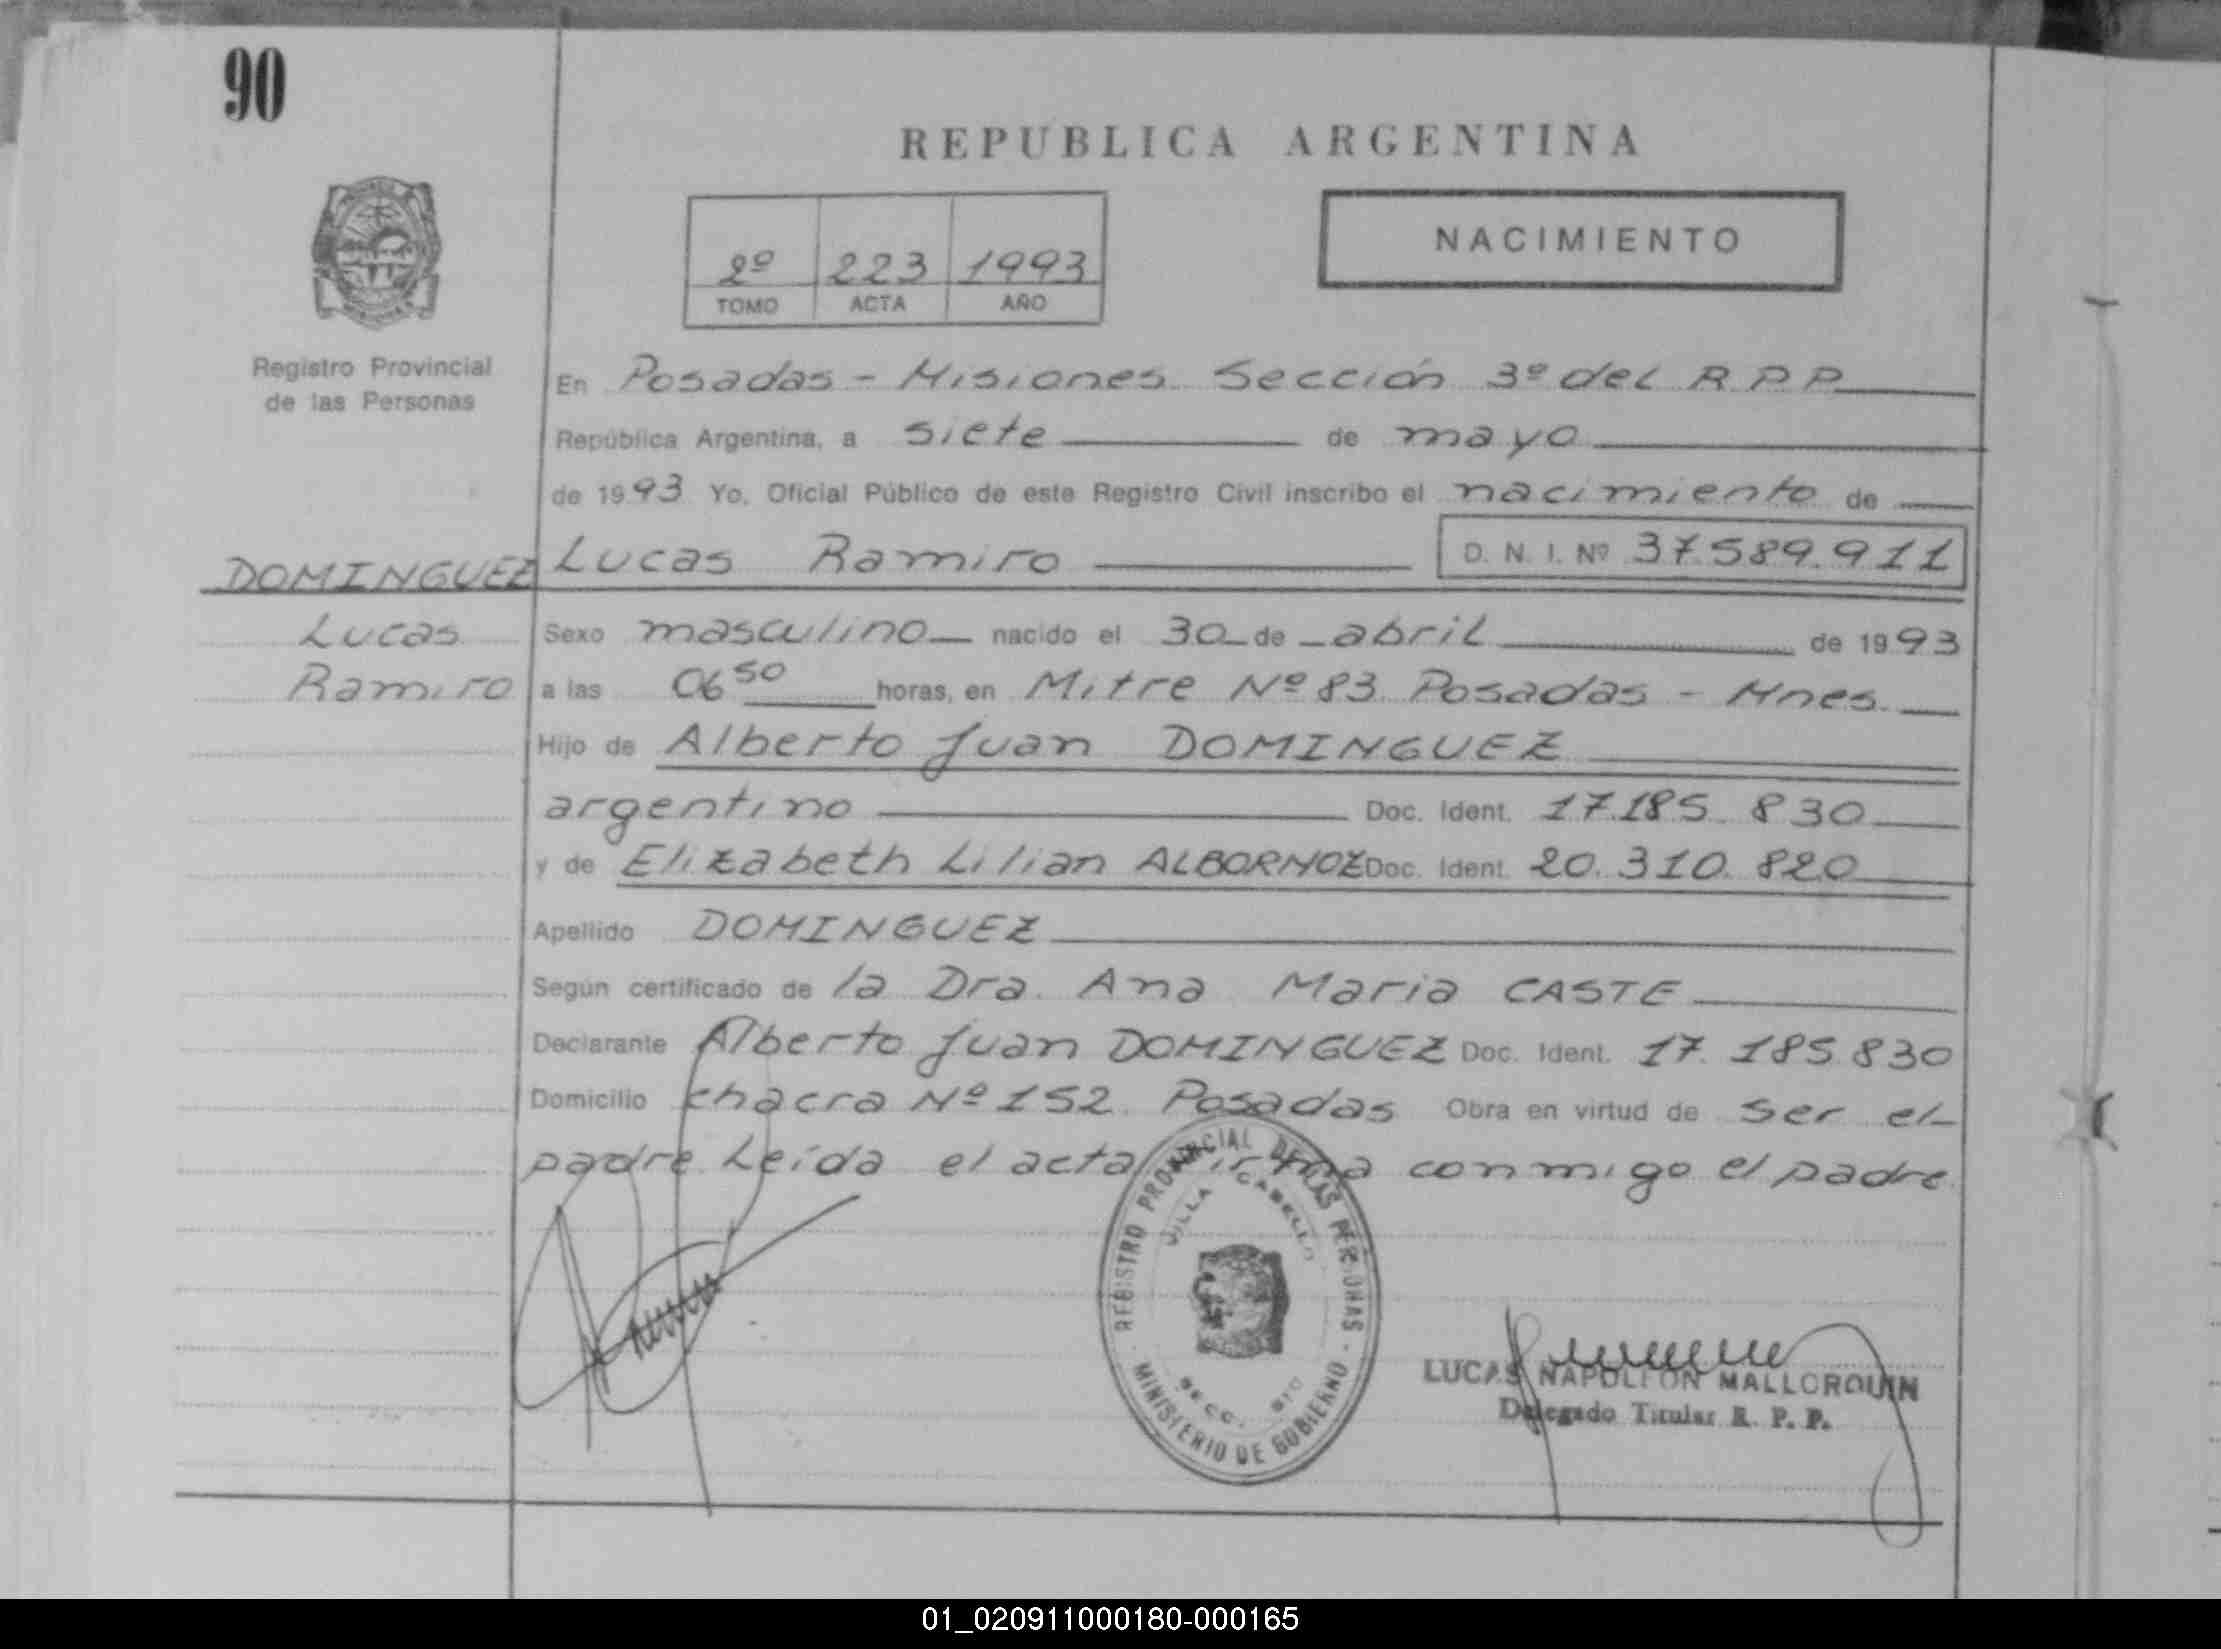 90
REPUBLICA ARGENTINA
2º 223 1993
TOMO ACTA AÑO
NACIMIENTO
Registro Provincial
de las Personas
En Posadas - Misiones Sección 3º del R P P
República Argentina, a siete de mayo
de 1993 Yo, Oficial Público de este Registro Civil inscribo el nacimiento de
DOMINGUEZ
Lucas
Ramiro
Lucas Ramiro D. N. I. Nº 37.589.911
Sexo masculino nacido el 30 de abril de 1993
a las 06 50 horas, en Mitre Nº 83 Posadas - Mnes.
Hijo de Alberto Juan DOMINGUEZ
argentino Doc. Ident. 17.185.830
y de Elizabeth Lilian ALBORNOZ Doc. Ident. 20.310.820
Apellido DOMINGUEZ
Según certificado de la Dra. Ana Maria CASTE
Declarante Alberto Juan DOMINGUEZ Doc. Ident. 17.185.830
Domicilio chacra Nº 152 Posadas Obra en virtud de ser el
padre Leída el acta firma conmigo el padre.
REGISTRO PROVINCIAL DE LAS PERSONAS
VILLA CABELLO
SECC.
MINISTERIO DE GOBIERNO
LUCAS NAPOLEON MALLORQUIN
Delegado Titular R. P. P.
01_020911000180-000165